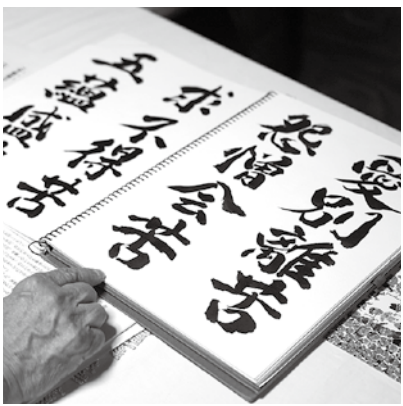 愛別離苦
怨憎会苦
求不得苦
五蘊盛苦